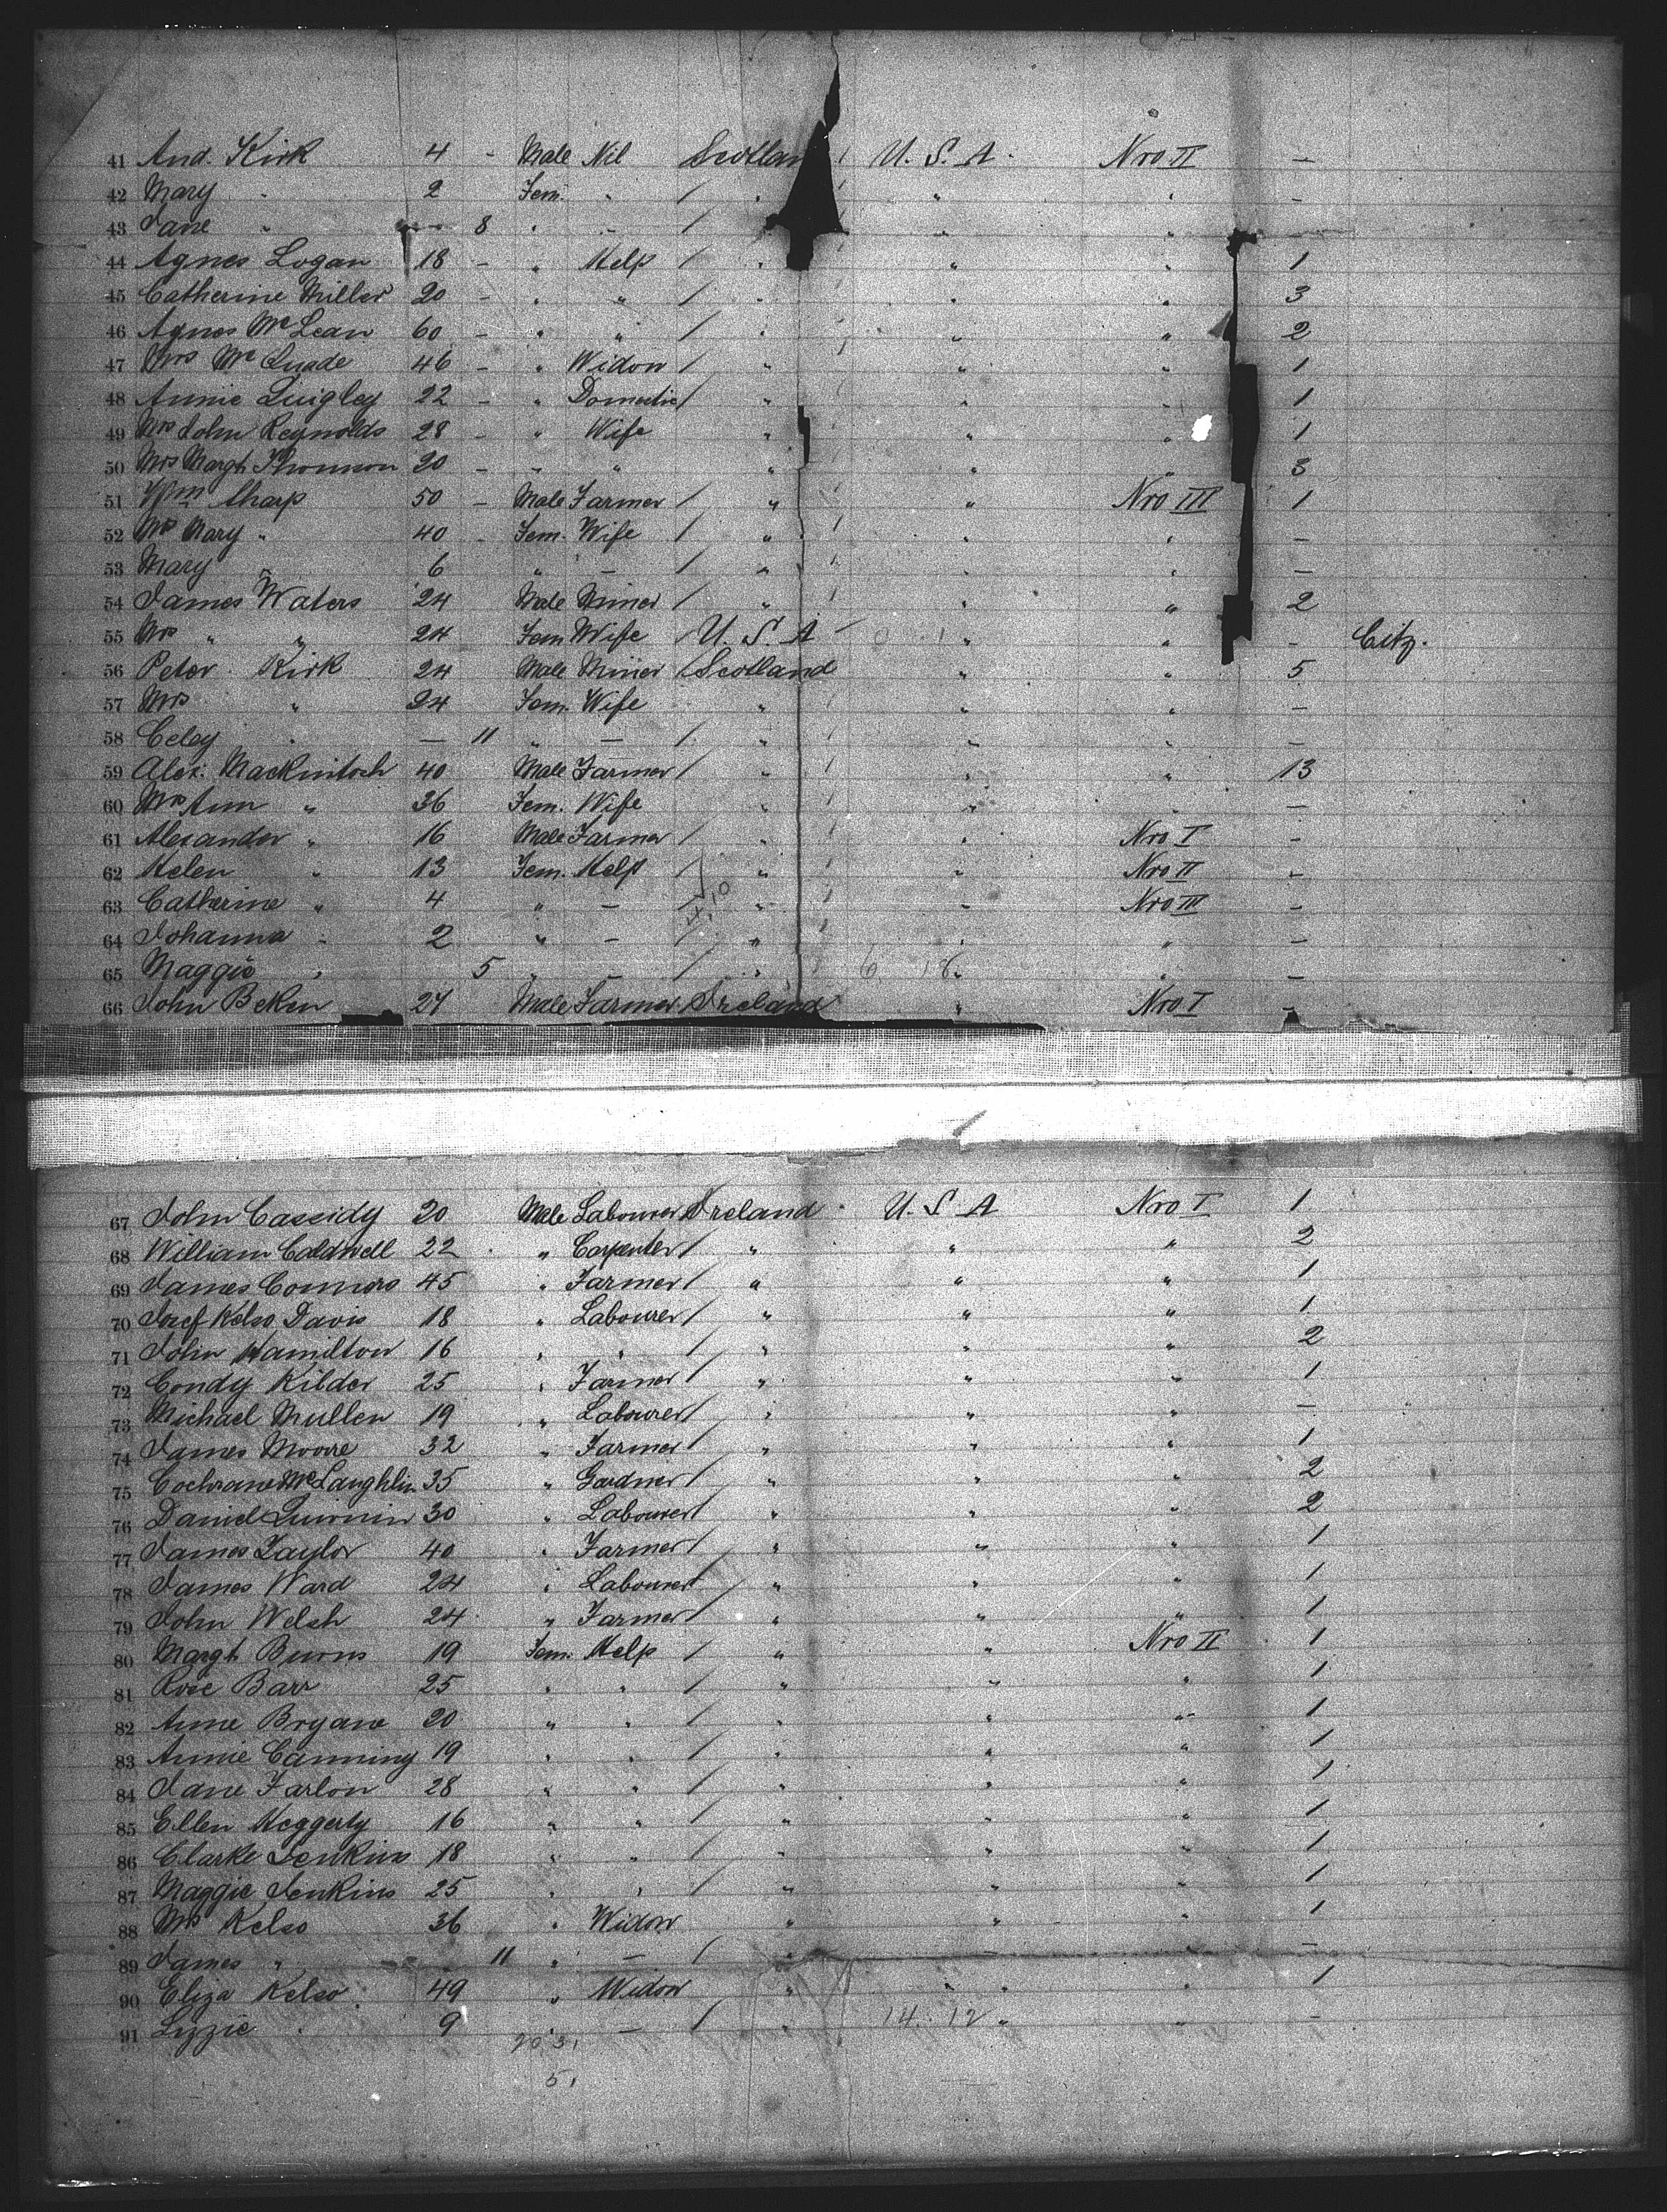 41 And. Kirk 4 - Male Nil Scotlan U. S. A. Nro II —
42 Mary " 2 Fem. " / " " " —
43 Jane " — 8 " — / " "
44 Agnes Logan 18 - " Help / " " " 1
45 Catherine Miller 20 - " " / " " " 3
46 Agnes McLean 60 - " " / " " " 2
47 Mrs McQuade 46 - " Widow / " " " 1
48 Annie Quigley 22 - " Domestic / " " " 1
49 Mrs John Reynolds 28 - " Wife " " " 1
50 Mrs Margt Thomson 20 - " " " " " 3
51 Wm Sharp 50 - Male Farmer / " " Nro III 1
52 Mrs Mary " 40 - Fem. Wife / " " " —
53 Mary " 6 " — / " " " —
54 James Waters 24 Male Miner / " " " 2
55 Mrs " " 24 Fem Wife / U. S. A " " - Citz.
56 Peter Kirk 24 Male Miner / Scotland " " 5
57 Mrs " 24 Fem. Wife " " " —
58 Celey " — 11 " — / " " " —
59 Alex. Mackintosh 40 Male Farmer / " " " 13
60 Mrs Ann " 36 Fem. Wife " " " —
61 Alexander " 16 Male Farmer / " " Nro I —
62 Helen " 13 Fem. Help / " " Nro II —
63 Catherine " 4 " — / " " Nro III —
64 Johanna " 2 " — / " " " —
65 Maggie " 5 " — / " 6 18 " " —
66 John Beken 27 Male Farmer Ireland " Nro I —
67 John Cassidy 20 Male Labourer Ireland U. S. A Nro I 1
68 William Caldwell 22 " Carpenter / " " " 2
69 James Connors 45 " Farmer / " " " 1
70 Josef Kelso Davis 18 " Labourer / " " " 1
71 John Hamilton 16 " " / " " " 2
72 Condy Kilder 25 " Farmer / " " " 1
73 Michael Mullen 19 " Labourer / " " " —
74 James Moore 32 " Farmer / " " " 1
75 Cochrane McLaughlin 35 " Gardner / " " " 2
76 Daniel 30 " Labourer / " " " 2
77 James Taylor 40 " Farmer / " " " 1
78 James Ward 24 " Labourer / " " " 1
79 John Welsh 24 " Farmer / " " " 1
80 Margt Burns 19 Fem. Help / " " Nro II 1
81 Rose Barr 25 " " / " " " 1
82 Anne Bryane 20 " " / " " " 1
83 Annie Canning 19 " " / " " " 1
84 Jane Farlon 28 " " / " " " 1
85 Ellen Heggerty 16 " " / " " " 1
86 Clarke Jenkins 18 " " / " " " 1
87 Maggie Jenkins 25 " " / " " " 1
88 Mrs Kelso 36 " Widow " " " 1
89 James " 11 " — / " " " —
90 Eliza Kelso 49 " Widow " " " 1
91 Lizzie " 9 " — / " 14 12 " " —
20 31
51